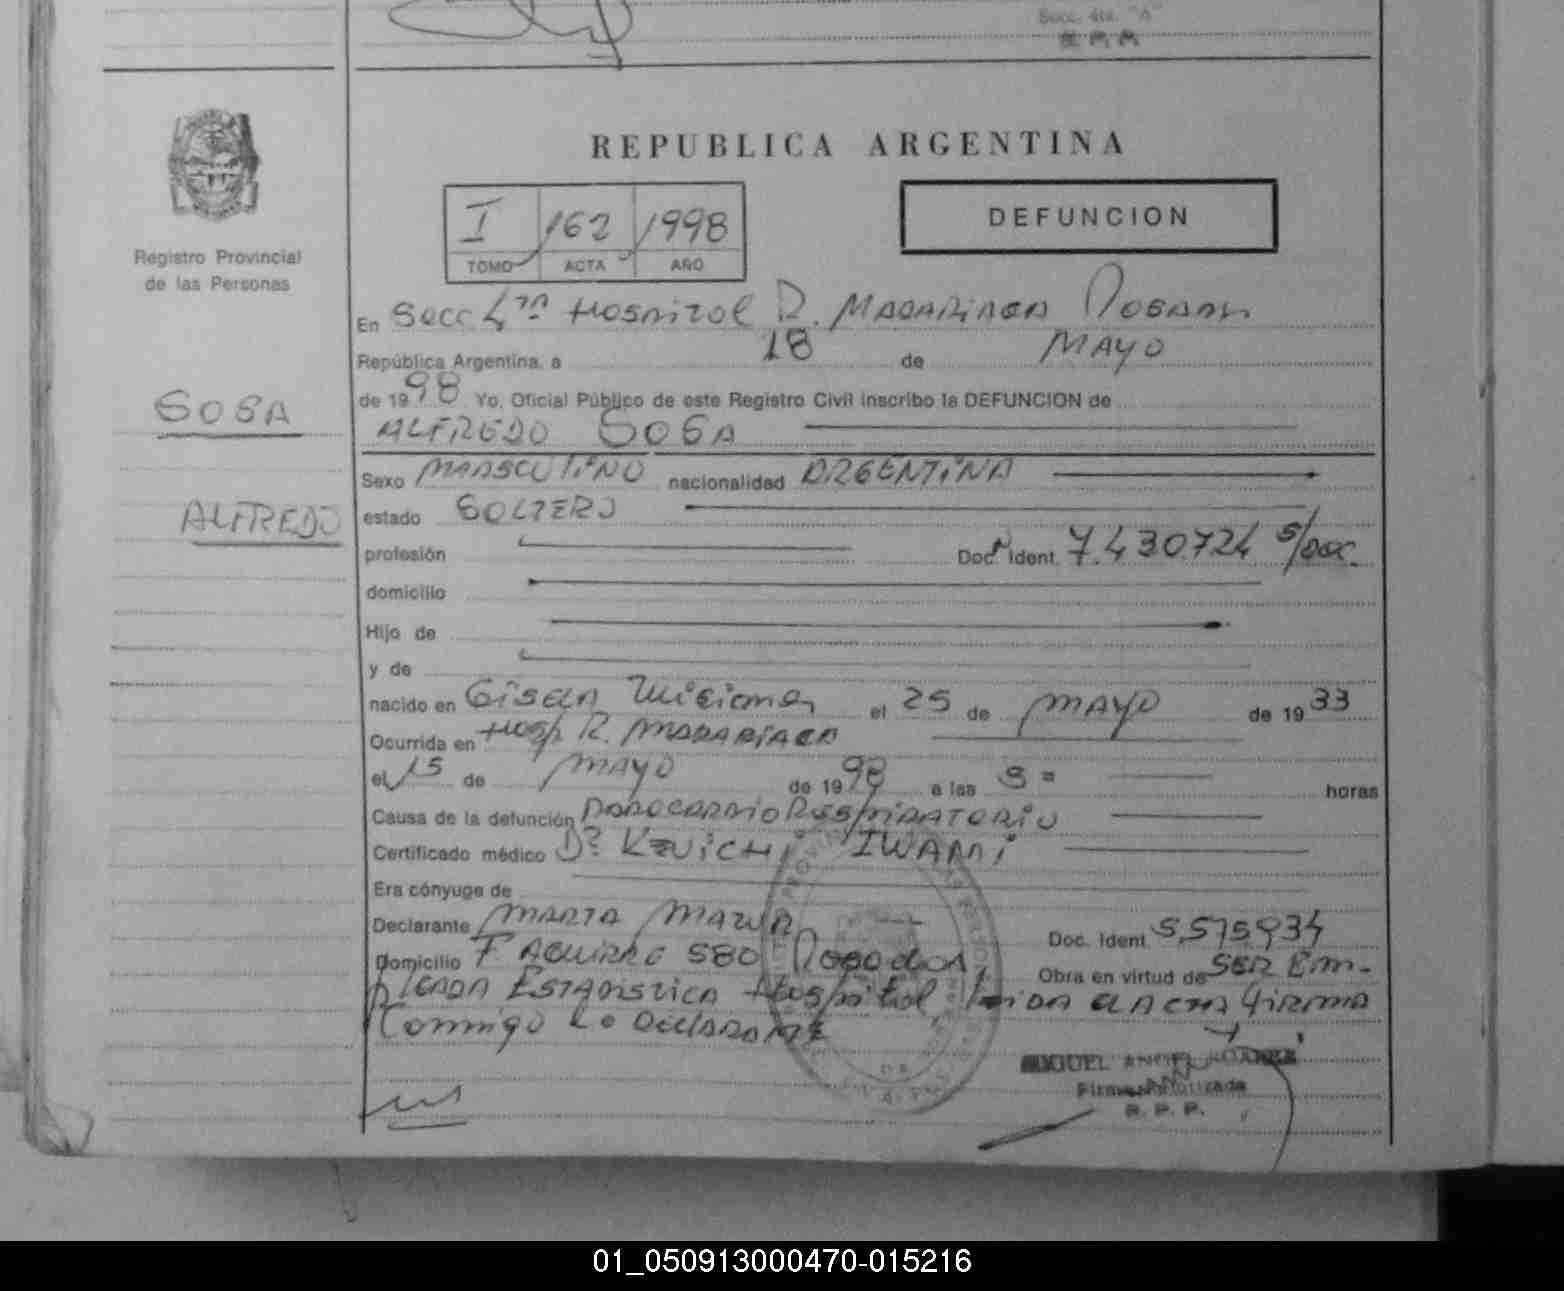 Secc. 4ta. "A"
R P P
REPUBLICA ARGENTINA
I 162 1998
TOMO ACTA AÑO
DEFUNCION
Registro Provincial
de las Personas
SOSA
ALFREDO
En Secc 4ta Hospital R. MADARIAGA POSADAS
República Argentina, a 18 de MAYO
de 1998 Yo, Oficial Público de este Registro Civil inscribo la DEFUNCION de
ALFREDO SOSA
Sexo MASCULINO nacionalidad ARGENTINA
estado SOLTERO
profesión Doc. Ident. 7.430724 s/doc.
domicilio
Hijo de
y de
nacido en Misiones el 25 de MAYO de 1933
Ocurrida en Hosp R. MADARIAGA
el 15 de MAYO de 1998 a las 9 = horas
Causa de la defunción PAROCARDIORESPIRATORIO
Certificado médico Dr. KEUICHI IWAMI
Era cónyuge de
Declarante MARTA Doc. Ident. 5.575934
Domicilio F. AGUIRRE 580 Posadas, Obra en virtud de SER Em-
PLEADA ESTADISTICA Hospital, Leida el ACTA firma
Conmigo La Declarante
MIGUEL ANGEL
Firma Autorizada
R. P. P.
01_050913000470-015216